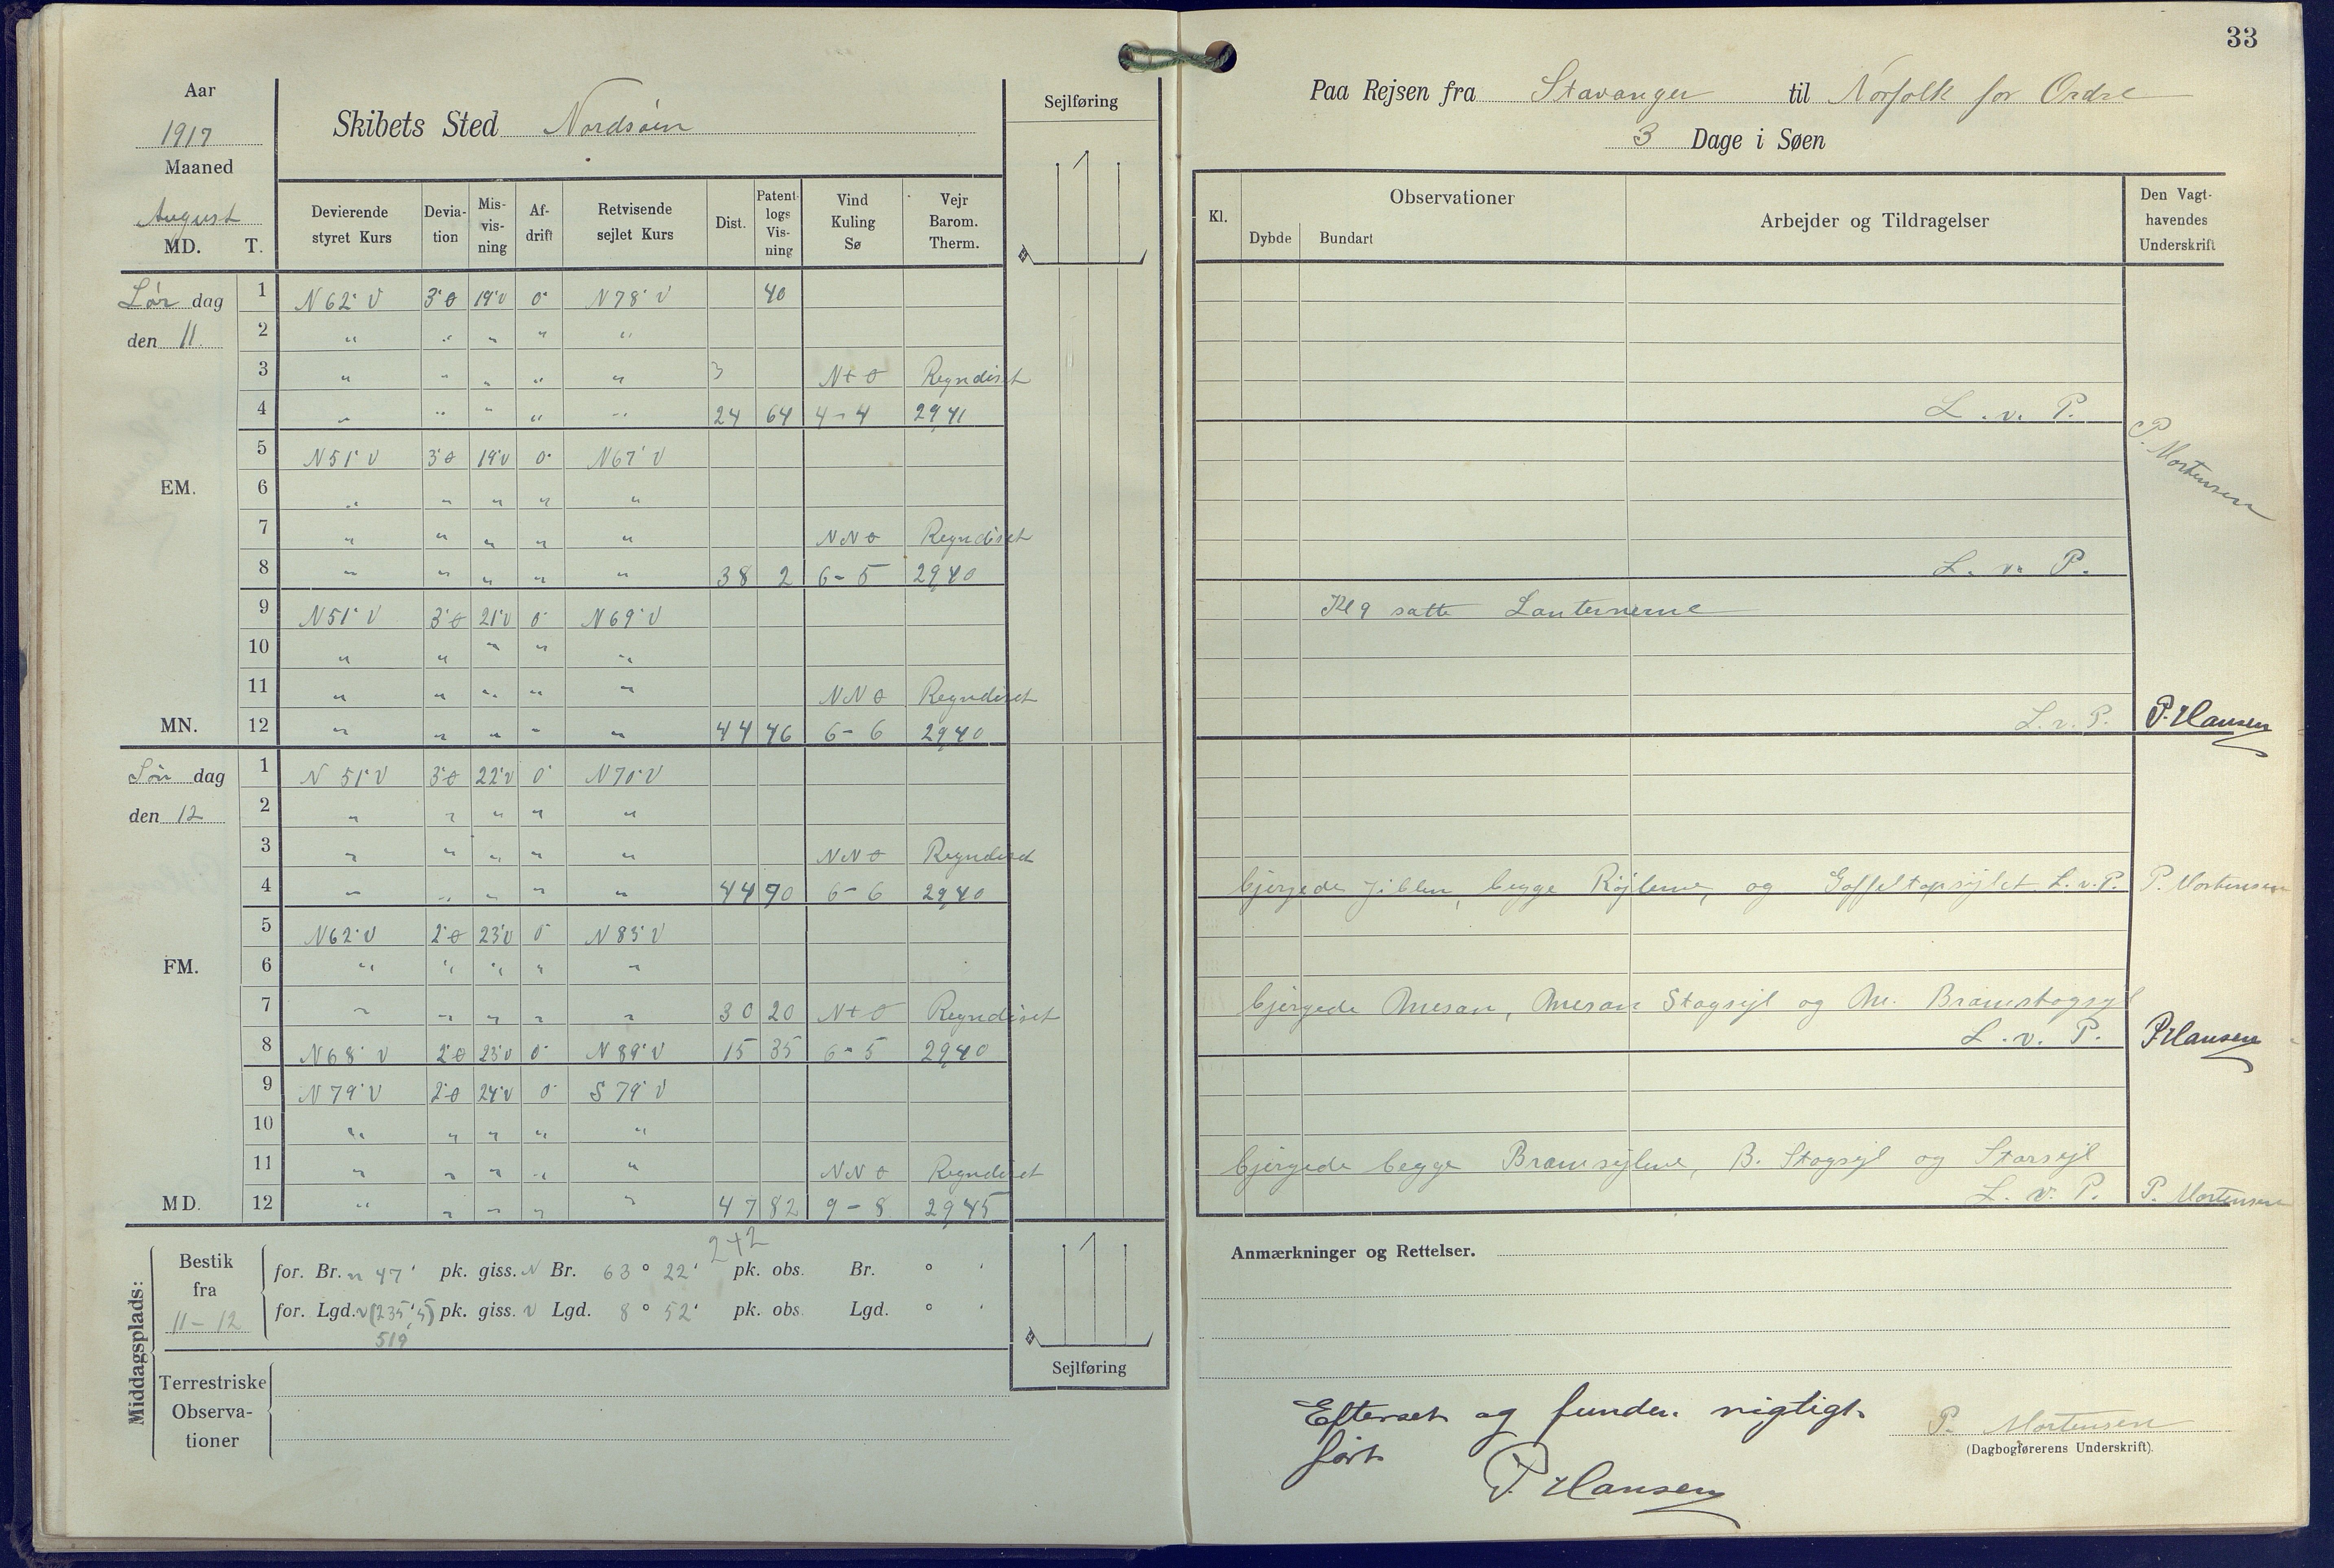 33
Aar
1917
Maaned
August
MD. T.
Skibets Sted Nordsøen
Sejlføring
Devierende styret Kurs | Devia-tion | Mis-vis-ning | Af-drift | Retvisende sejlet Kurs | Dist. | Patent-logs Vis-ning | Vind Kuling Sø | Vejr Barom. Therm.
Lør dag 1 N 62° V 3°Ø 19°V 0° N 78° V 40
den 11. 2 " " " " "
3 " " " " " 3 NtØ Regndiset
4 " " " " " 24 64 4-4 29,41
5 N 51° V 3°Ø 19°V 0° N 67° V
EM. 6 " " " " "
7 " " " " " NNØ Regndiset
8 " " " " " 38 2 6-5 29,40
9 N 51° V 3°Ø 21°V 0° N 69° V
10 " " " " "
11 " " " " " NNØ Regndiset
MN. 12 " " " " " 44 46 6-6 29,40
Søn dag 1 N 51° V 3°Ø 22°V 0° N 70° V
den 12 2 " " " " "
3 " " " " " NNØ Regndiset
4 " " " " " 44 90 6-6 29,40
5 N 62° V 2°Ø 23°V 0° N 83° V
FM. 6 " " " " "
7 " " " " " 30 20 NtØ Regndiset
8 N 68° V 2°Ø 23°V 0° N 89° V 15 35 6-5 29,40
9 N 79° V 2°Ø 24°V 0° S 79° V
10 " " " " "
11 " " " " " NNØ Regndiset
MD. 12 " " " " " 47 82 9-8 29,45
242
Middagsplads:
Bestik fra 11-12
for. Br. n 47' pk. giss. N Br. 63° 22' pk. obs. Br. ° '
for. Lgd. v (235',5) pk. giss. V Lgd. 8° 52' pk. obs. Lgd. ° '
519
Sejlføring
Terrestriske
Observa-
tioner
Paa Rejsen fra Stavanger til Norfolk for Ordre
3 Dage i Søen
Kl. | Observationer | Dybde | Bundart | Arbejder og Tildragelser | Den Vagt-havendes Underskrift
L. v. P.
P. Mortensen
L. v. P.
Kl 9 satte Lanternerne
L. v. P. P. Hansen
bjergede Jibben, begge Røjlerne, og Gaffeltopsejlet L. v. P. P. Mortensen
bjergede Mesan, Mesan Stagsejl og M. Bramstagsejl
L. v. P. P Hansen
bjergede begge Bramsejlene, B. Stagsejl og Storsejl
L. v. P. P. Mortensen
Anmærkninger og Rettelser.
Efterset og funden rigtigt
ført
P. Hansen
P. Mortensen
(Dagbogførerens Underskrift).